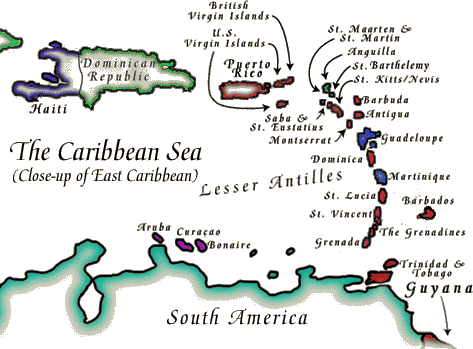 British
Virgin Islands
U.S.
Virgin Islands
St. Maarten &
St. Martin
Anguilla
St. Barthelemy
St. Kitts/Nevis
Dominican
Republic
Puerto
Rico
Haiti
Barbuda
Antigua
Saba &
St. Eustatius
Montserrat
Guadeloupe
The Caribbean Sea
(Close-up of East Caribbean)
Dominica
Lesser Antilles
Martinique
St. Lucia
Barbados
St. Vincent
The Grenadines
Aruba
Curaçao
Bonaire
Grenada
Trinidad &
Tobago
Guyana
South America